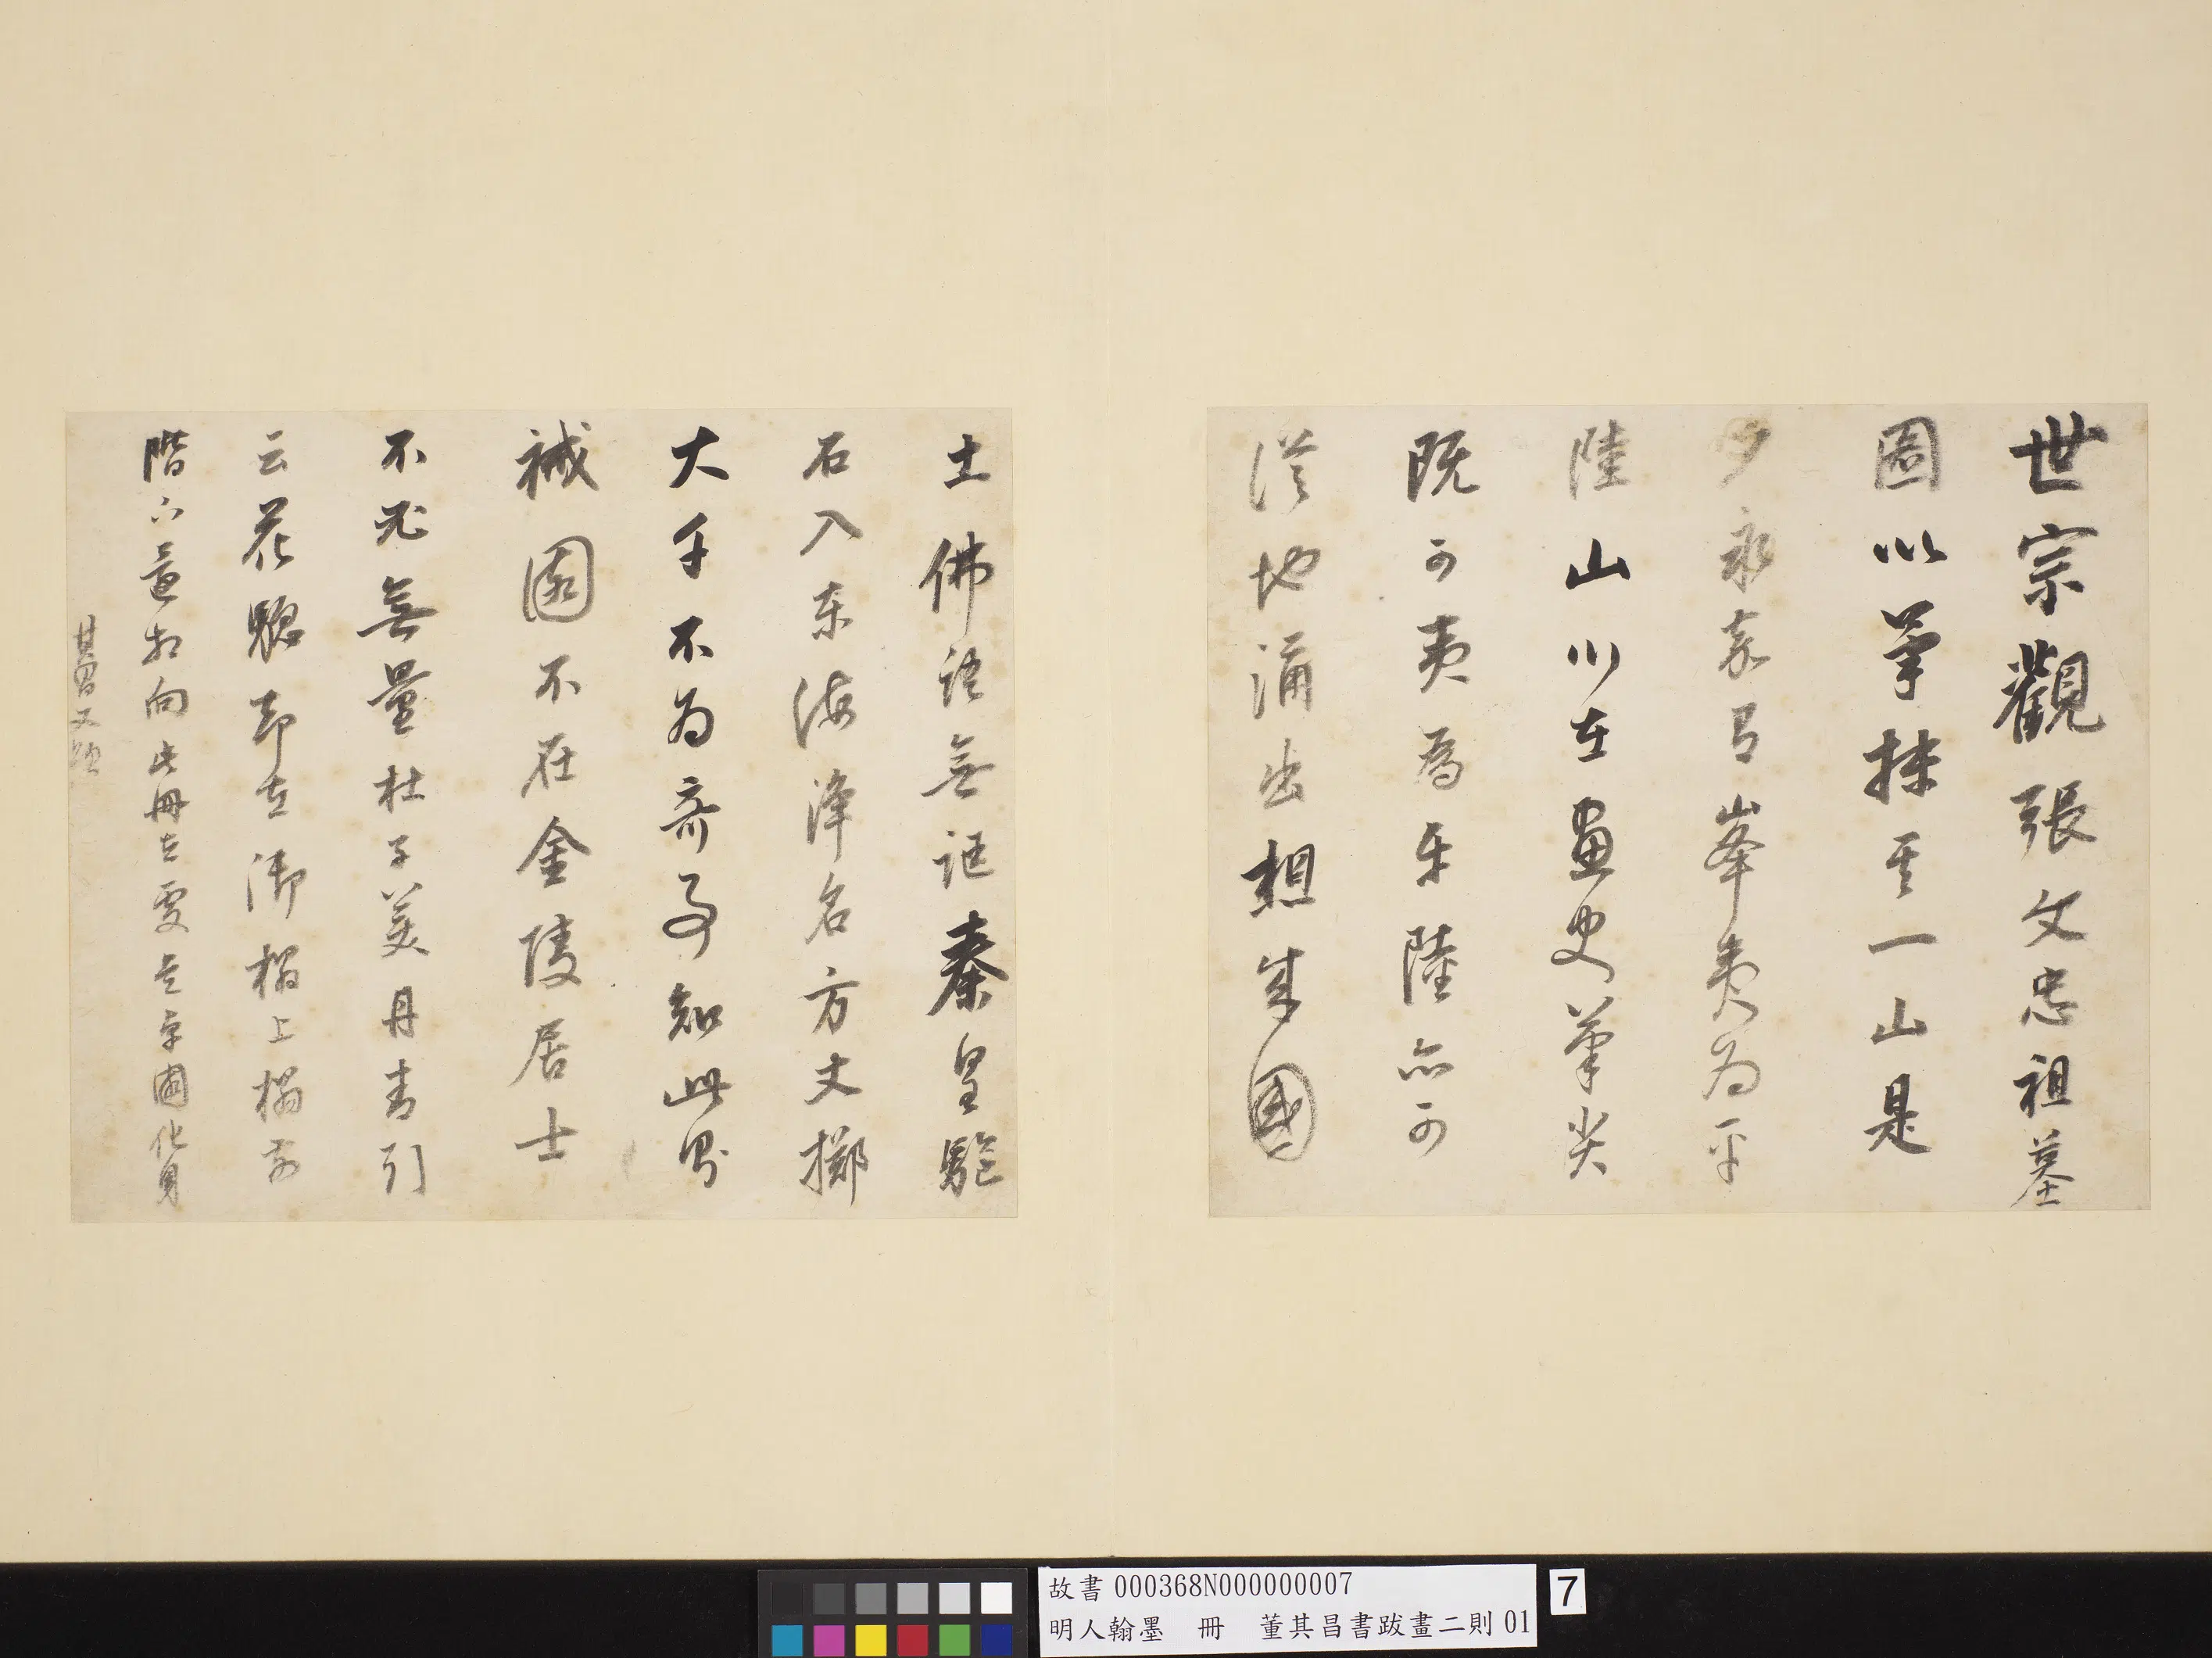 世宗觀張文忠祖墓
圖以筆抹其一山是
夕永嘉有峯夷為平
陸山川在畫史筆尖
既可夷為平陸亦可
從地涌出想成國
土佛語無誑秦皇驅
石入東海淨名方丈擲
大千不為奇事知此則
祴園不在金陵居士
不死無量杜子美丹青引
云花驄却在御榻上榻前
階下並相向此冊亦
其昌又題
故書 000368N000000007
明人翰墨 冊 董其昌書跋畫二則 01
7